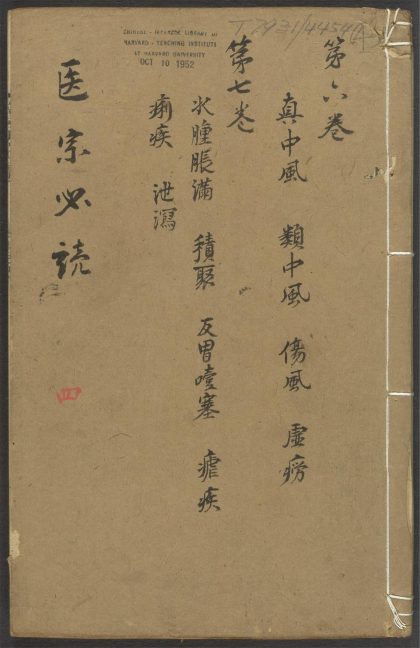 CHINESE - JAPANESE LIBRARY OF
HARVARD - YENCHING INSTITUTE
AT HARVARD UNIVERSITY
OCT 10 1952
第六巻
真中風 類中風 傷風 虛癆
第七巻
水腫脹滿 積聚 反胃噎塞 瘧疾
痢疾 泄瀉
医宗必読
四